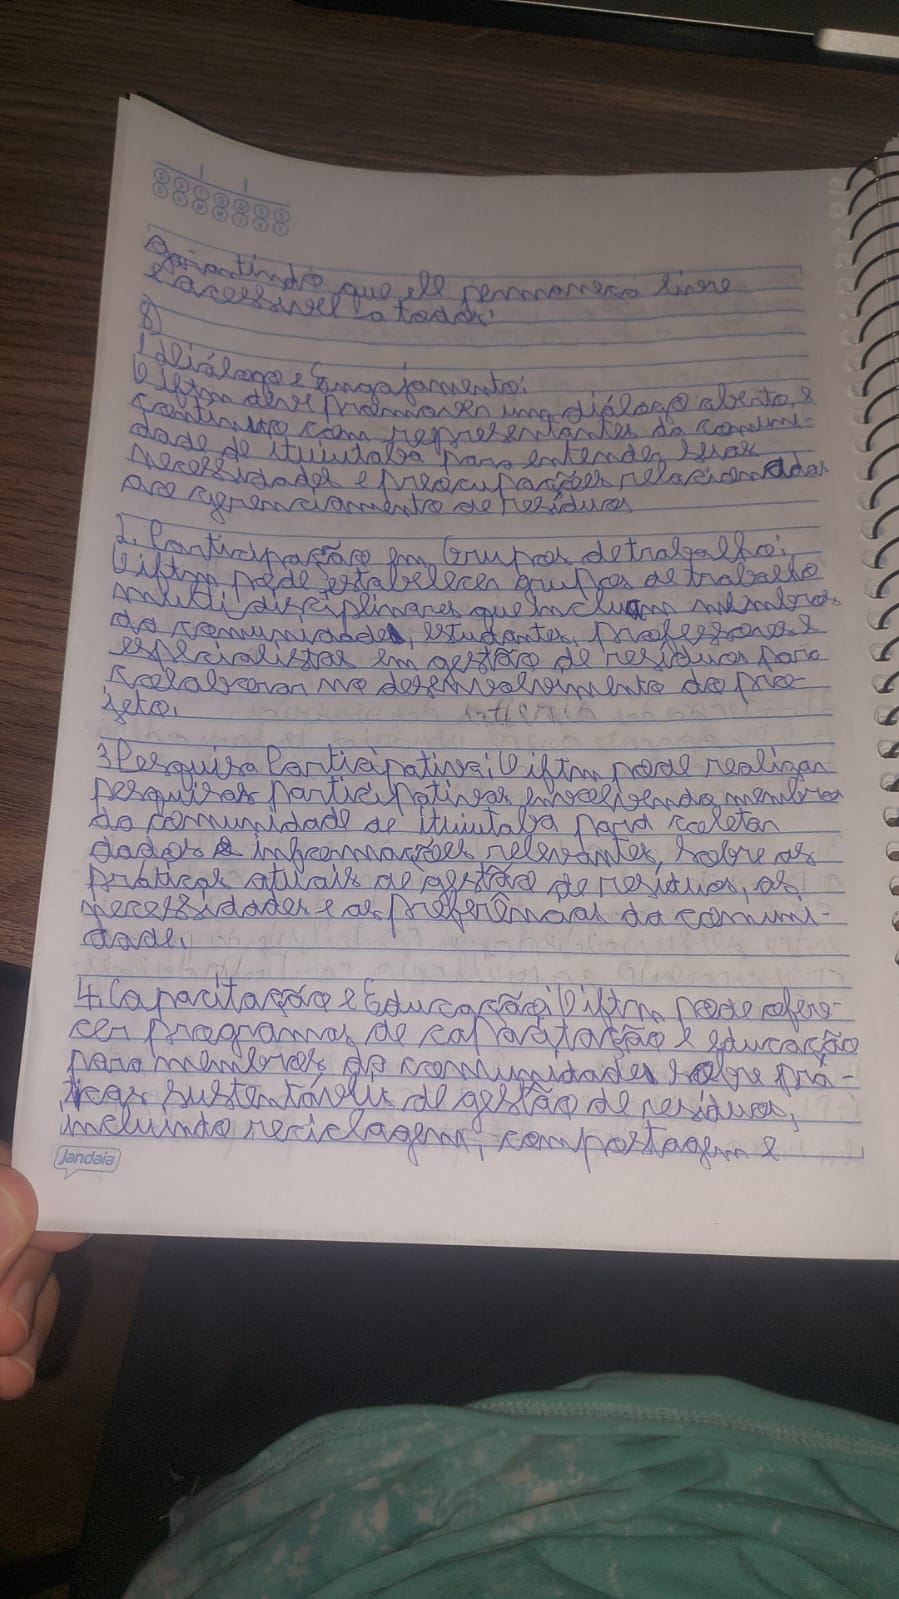 D S T Q Q S S
D L M M J V S
garantindo que ele permaneça livre
e acessível a todos.
8)
1 Diálogo e Engajamento:
O iftm deve promover um diálogo aberto e
contínuo com representantes da comuni-
dade de ituiutaba para entender suas
necessidades e preocupações relacionadas
ao gerenciamento de resíduos
2. Participação em Grupos de trabalho:
O iftm pode estabelecer grupos de trabalho
multidisciplinares que incluam membros
da comunidade, estudantes, professores e
especialistas em gestão de resíduos para
colaborar no desenvolvimento do pro-
jeto.
3 Pesquisa Participativa: O iftm pode realizar
pesquisas participativas envolvendo membros
da comunidade de ituiutaba para coletar
dados e informações relevantes, sobre as
práticas atuais de gestão de resíduos, as
necessidades e as preferências da comuni-
dade.
4. Capacitação e Educação: O iftm pode ofere-
cer programas de capacitação e educação
para membros da comunidade sobre prá-
ticas sustentáveis de gestão de resíduos,
incluindo reciclagem, compostagem e
Jandaia